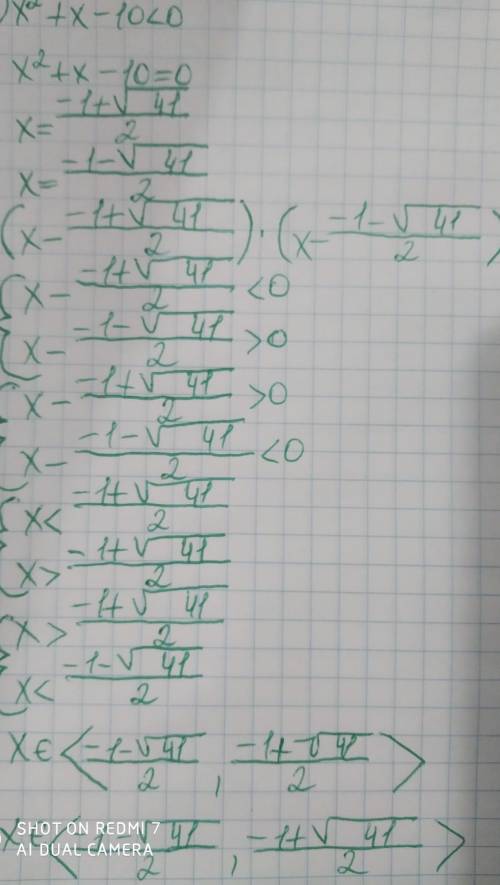 ) x² + x - 10 < 0
x² + x - 10 = 0
x = (-1+√41)/2
x = (-1-√41)/2
(x - (-1+√41)/2) · (x - (-1-√41)/2)
{ x - (-1+√41)/2 < 0
{ x - (-1-√41)/2 > 0
{ x - (-1+√41)/2 > 0
{ x - (-1-√41)/2 < 0
{ x < (-1+√41)/2
{ x > (-1+√41)/2
{ x > (-1+√41)/2
{ x < (-1-√41)/2
x ∈ < (-1-√41)/2 , (-1+√41)/2 >
x ∈ < (-1-√41)/2 , (-1+√41)/2 >
SHOT ON REDMI 7
AI DUAL CAMERA